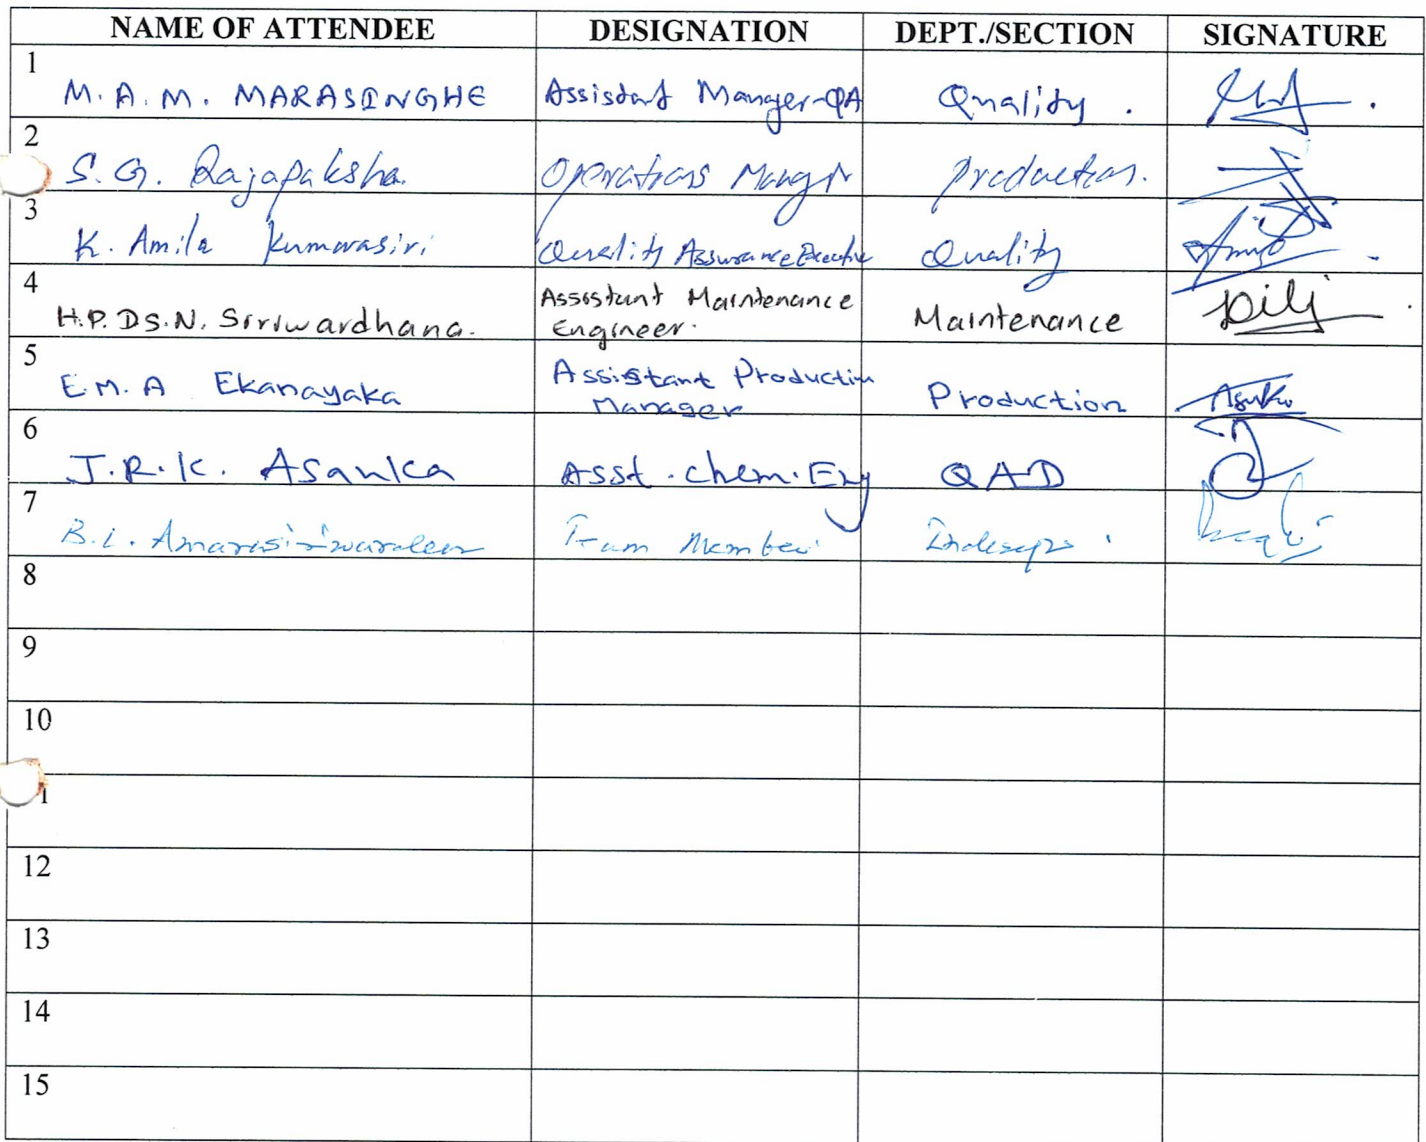 NAME OF ATTENDEE DESIGNATION DEPT./SECTION SIGNATURE
1 M.A.M. MARASINGHE Assistant Manager-QA Quality.
2 S.G. Rajapaksha. Operations Production.
3 K. Amila Kumarasiri Quality Assurance Executive Quality
4 H.P.DS.N. Siriwardhana. Assistant Maintenance
Engineer. Maintenance
5 E.M.A Ekanayaka Assistant Production
Manager Production
6 J.R.K. Asanka Asst.chem.Eng QAD
7 B.L. Team Member
8
9
10
1
12
13
14
15